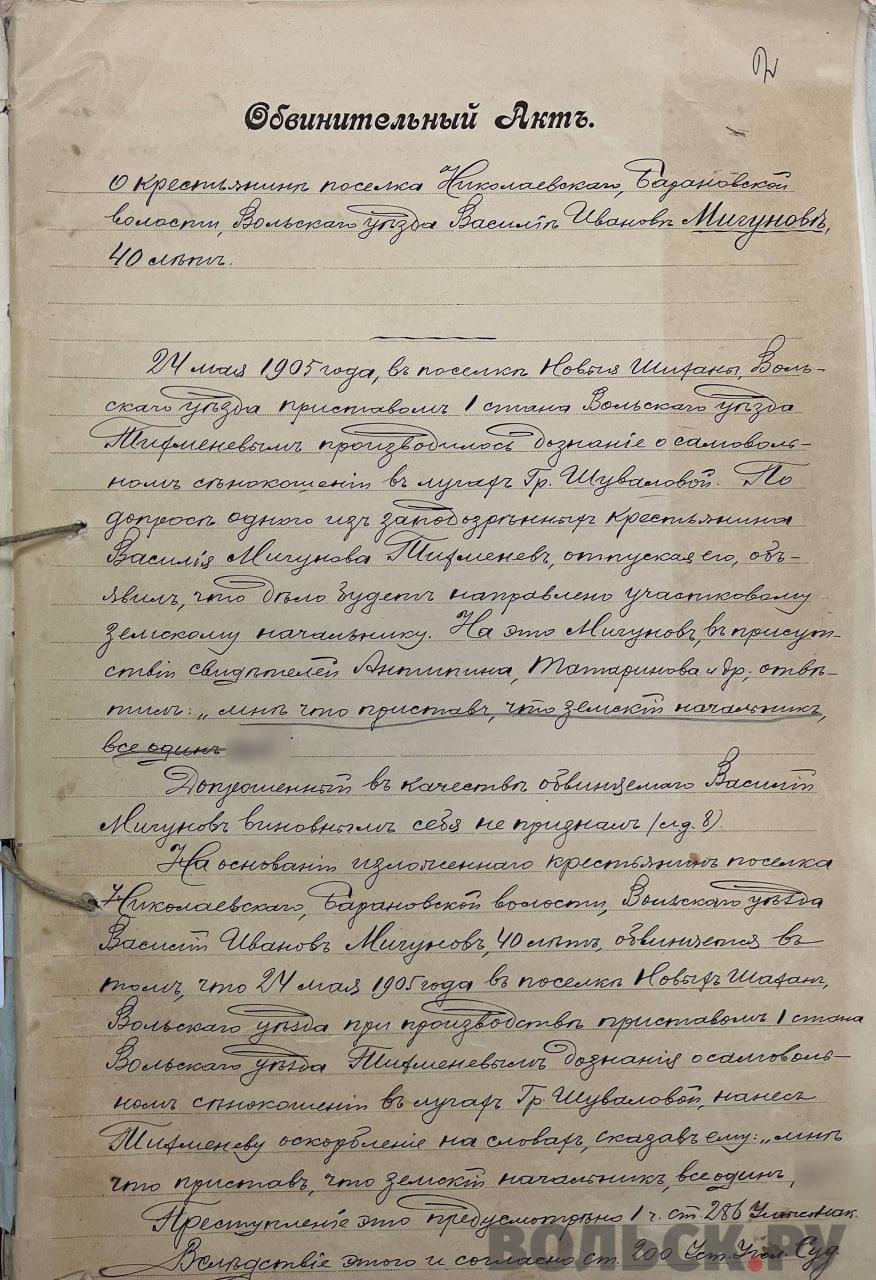 Обвинительный Актъ.
О крестьянинѣ поселка Николаевскаго, Барановской
волости, Вольскаго уѣзда Василіѣ Ивановѣ Мигуновѣ,
40 лѣтъ.
24 мая 1905 года, въ поселкѣ Новыя Шиханы, Воль-
скаго уѣзда приставомъ 1 стана Вольскаго уѣзда
Тихменевымъ производилось дознаніе о самоволь-
номъ сѣнокошеніи въ лугахъ Гр. Шуваловой. По
допросѣ одного изъ заподозрѣнныхъ крестьянина
Василія Мигунова Тихменевъ, отпуская его, объ-
явилъ, что дѣло будетъ направлено участковому
земскому начальнику. На это Мигуновъ, въ присут-
ствіи свидѣтелей Антипина, Татаринова и др., отвѣ-
тилъ: „мнѣ что приставъ, что земскій начальникъ,
все одинъ
Допрошенный въ качествѣ обвиняемаго Василій
Мигуновъ виновнымъ себя не призналъ (сл.д. 8).
На основаніи изложеннаго крестьянинъ поселка
Николаевскаго, Барановской волости, Вольскаго уѣзда
Василій Ивановъ Мигуновъ, 40 лѣтъ, обвиняется въ
томъ, что 24 мая 1905 года въ поселкѣ Новыхъ Шиханъ,
Вольскаго уѣзда при производствѣ приставомъ 1 стана
Вольскаго уѣзда Тихменевымъ дознанія о самоволь-
номъ сѣнокошеніи въ лугахъ Гр. Шуваловой, нанесъ
Тихменеву оскорбленіе на словахъ, сказавъ ему: „мнѣ
что приставъ, что земскій начальникъ, все одинъ,
Преступленіе это предусмотрѣно 1 ч. ст 286 Улож. Нак.
Вслѣдствіе этого и согласно ст. 200 Уст. Угол. Суд.
ВОЛЬСК.РУ